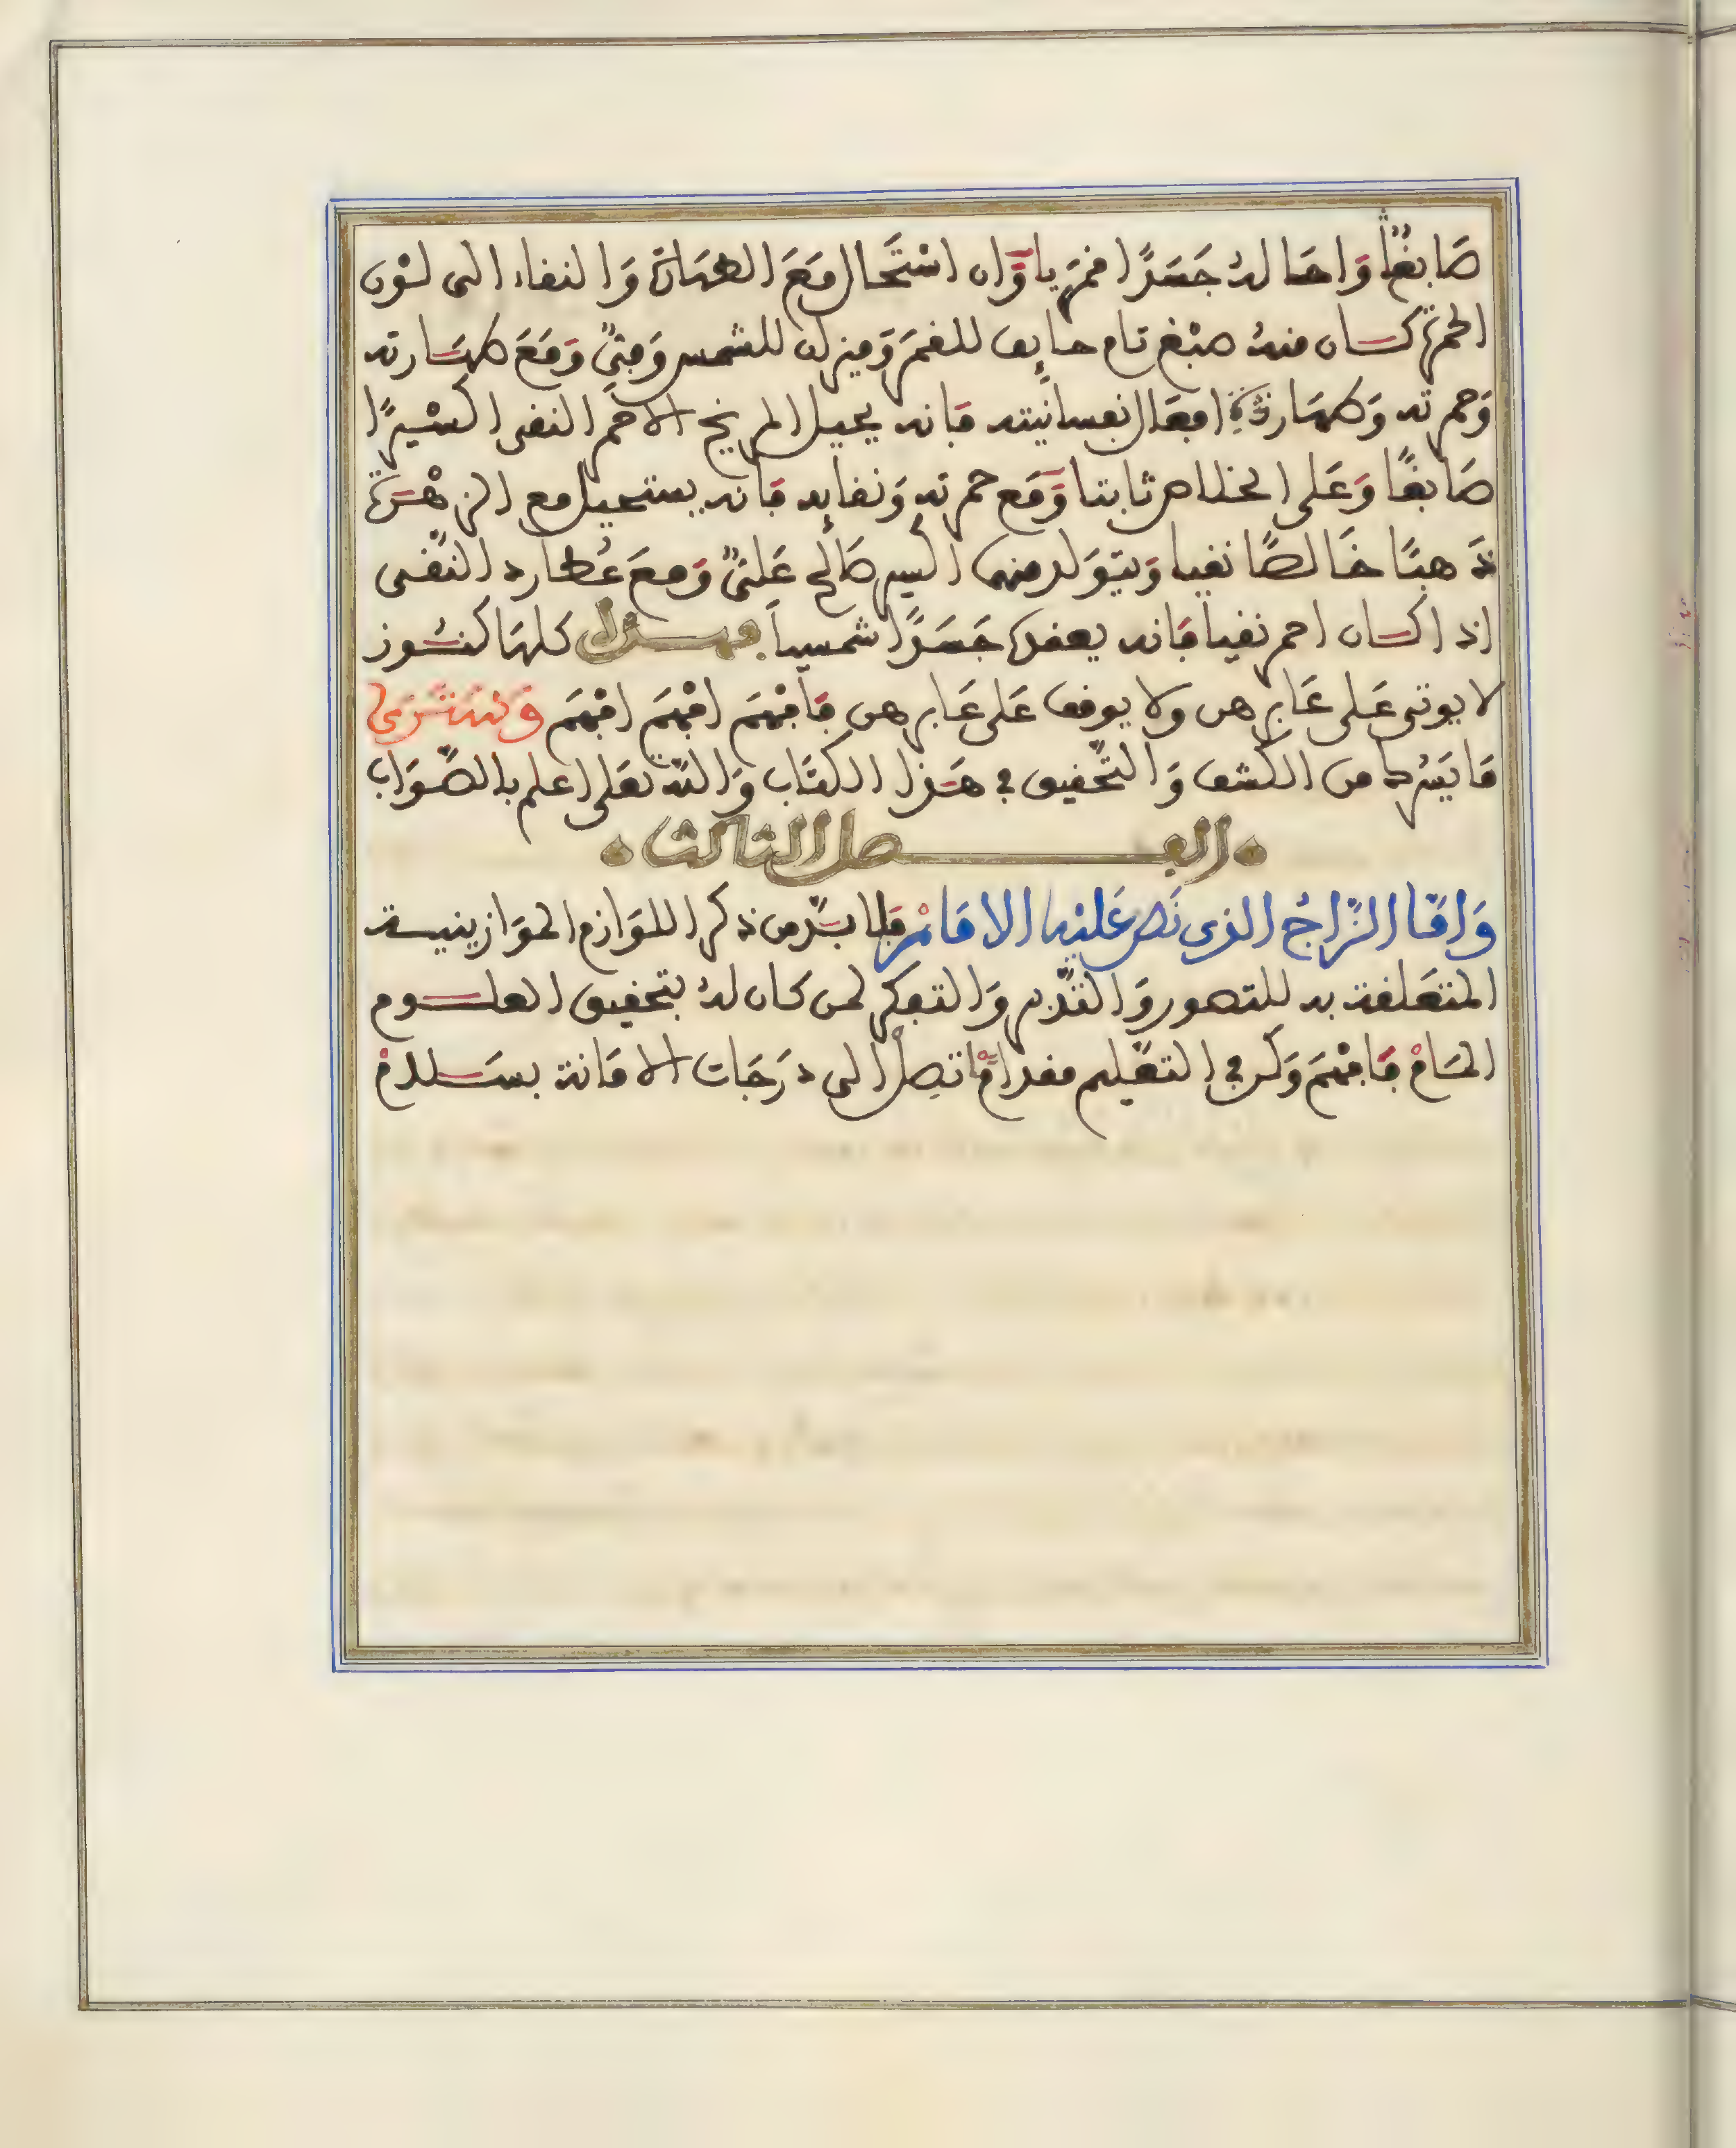 صَابغًا وَاحَالهُ جَسَدًا قمَريا وَان اسْتَحَال مَعَ الطهَارَة وَالنقاء الى لَوْن
الحمرَة كَان منهُ صبْغ تام حايف للقمَر وَميزان للشمس وَمتىٰ وَمَعَ طهَارته
وَحمرته وَطهَارة افعَال نفسانيته فَانه يحيل المريخ الاحمر النقى اكسيرًا
صَابغًا وَعَلى الخلاص ثابتا وَمَع حمرته وَنقايه فَانه يستحيل مع الزهْرَة
ذَهبًا خَالصًا نقيا وَيتوَلد منهما اكسير صَالح عَلىٰ وَمعَ عُطارد النقى
اذا كَان احمر نقيا فَانه يعقدهُ جَسَدًا شمسياً فهذه كلهَا كنُوز
لا يوتى عَلى غَابرهن ولا يوقف عَلى غَابرهن فَافهَم افهَم افهَم وَلنشرَع
مَا يسّر من الكشف وَالتّحقيق في هَذا الكتَاب وَاللّه تعَلى اعلم بالصّوَاب
الفصل الثالث
وَامَّا الزّاجُ الذى نَص عَليْه الامَامْ فلا بدّ من ذكر اللوَازم الموَازينية
المتعَلقة به للتصور وَالتّدبر وَالتفكر لمن كَان لهُ بتحقيق العلُوم
المَامْ فَافهَم وَكن في التعَليم مقدامًا تصِل الى درَجَات الامَانة بسَلامْ